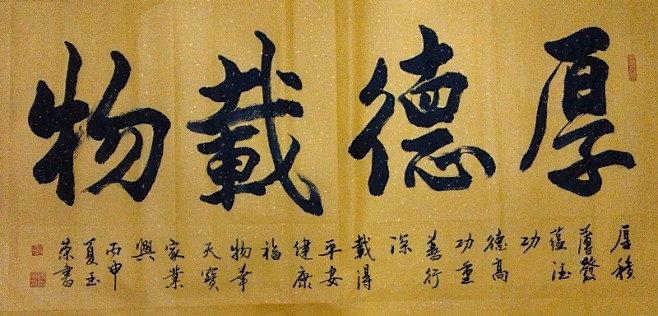 厚德載物
厚積
薄發
蘊法
功
德高
功重
善行
深
載得
平安
健康
福
物華
天寶
家業
興
丙申
夏玉
榮書